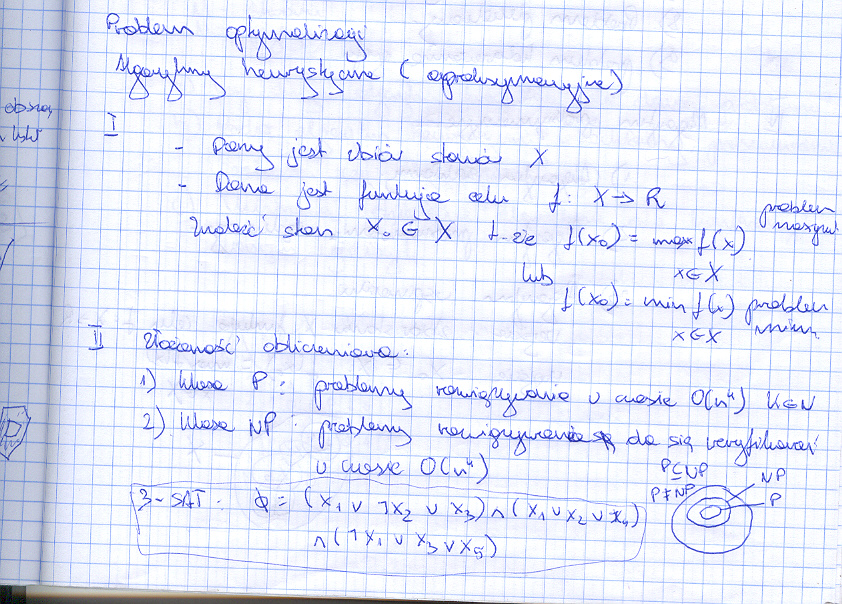 Problem optymalizacji
Algorytmy heurystyczne (aproksymacyjne)
I
- Dany jest zbiór stanów X
- Dana jest funkcja celu f: X → R
Znaleźć stan x₀ ∈ X t-że f(x₀) = max f(x) problem
x∈X
lub
f(x₀) = min f(x) problem
x∈X minim.
II Złożoność obliczeniowa:
1) klasa P: problemy rozwiązywalne w czasie O(nᵏ) K∈N
2) klasa NP: problemy da się weryfikować
w czasie O(nᵏ)
P⊆NP
P≠NP
NP
P
3-SAT: Φ = (x₁ ∨ ¬x₂ ∨ x₃) ∧ (x₁ ∨ x₂ ∨ x₄)
∧ (¬x₁ ∨ x₃ ∨ x₅)